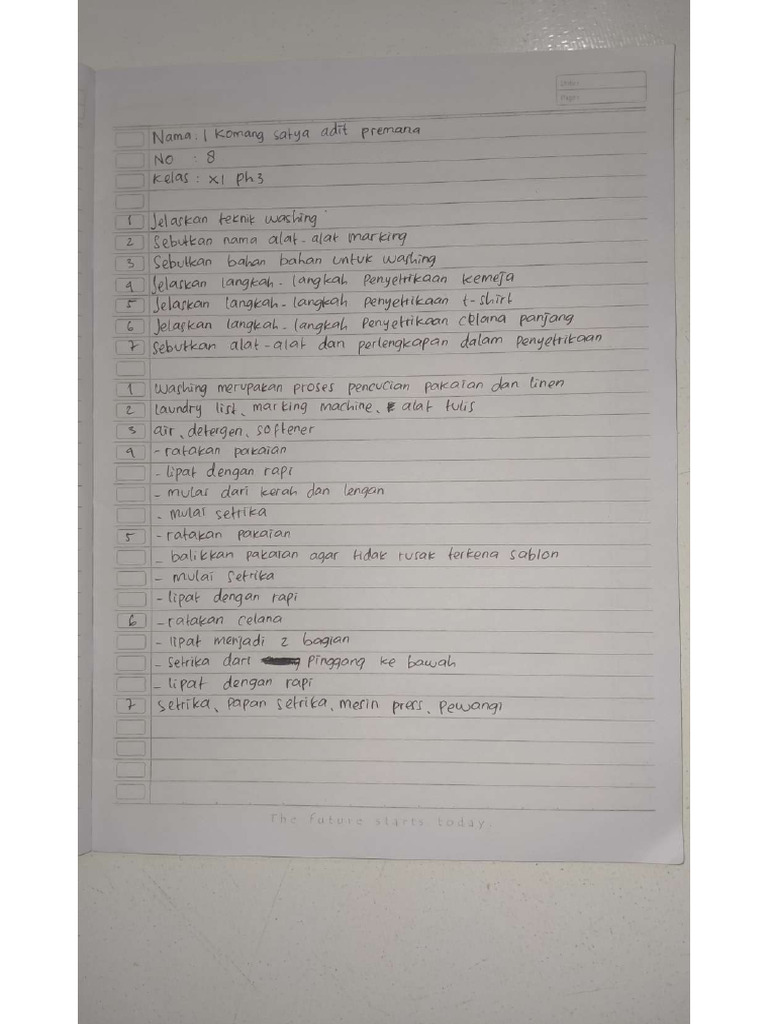 Date:
Page:
Nama : I Komang satya adit premana
No : 8
Kelas : XI Ph3
1 Jelaskan teknik washing
2 Sebutkan nama alat-alat marking
3 Sebutkan bahan bahan untuk washing
4 Jelaskan langkah-langkah Penyetrikaan kemeja
5 Jelaskan langkah-langkah Penyetrikaan t-shirt
6 Jelaskan langkah-langkah Penyetrikaan celana panjang
7 Sebutkan alat-alat dan perlengkapan dalam Penyetrikaan
1 Washing merupakan proses pencucian pakaian dan linen
2 laundry list, marking machine, alat tulis
3 air, detergen, softener
4 - ratakan pakaian
- lipat dengan rapi
- mulai dari kerah dan lengan
- mulai setrika
5 - ratakan pakaian
- balikkan pakaian agar tidak rusak terkena sablon
- mulai setrika
- lipat dengan rapi
6 - ratakan celana
- lipat menjadi 2 bagian
- setrika dari pinggang ke bawah
- lipat dengan rapi
7 setrika, papan setrika, mesin press, pewangi
The future starts today.